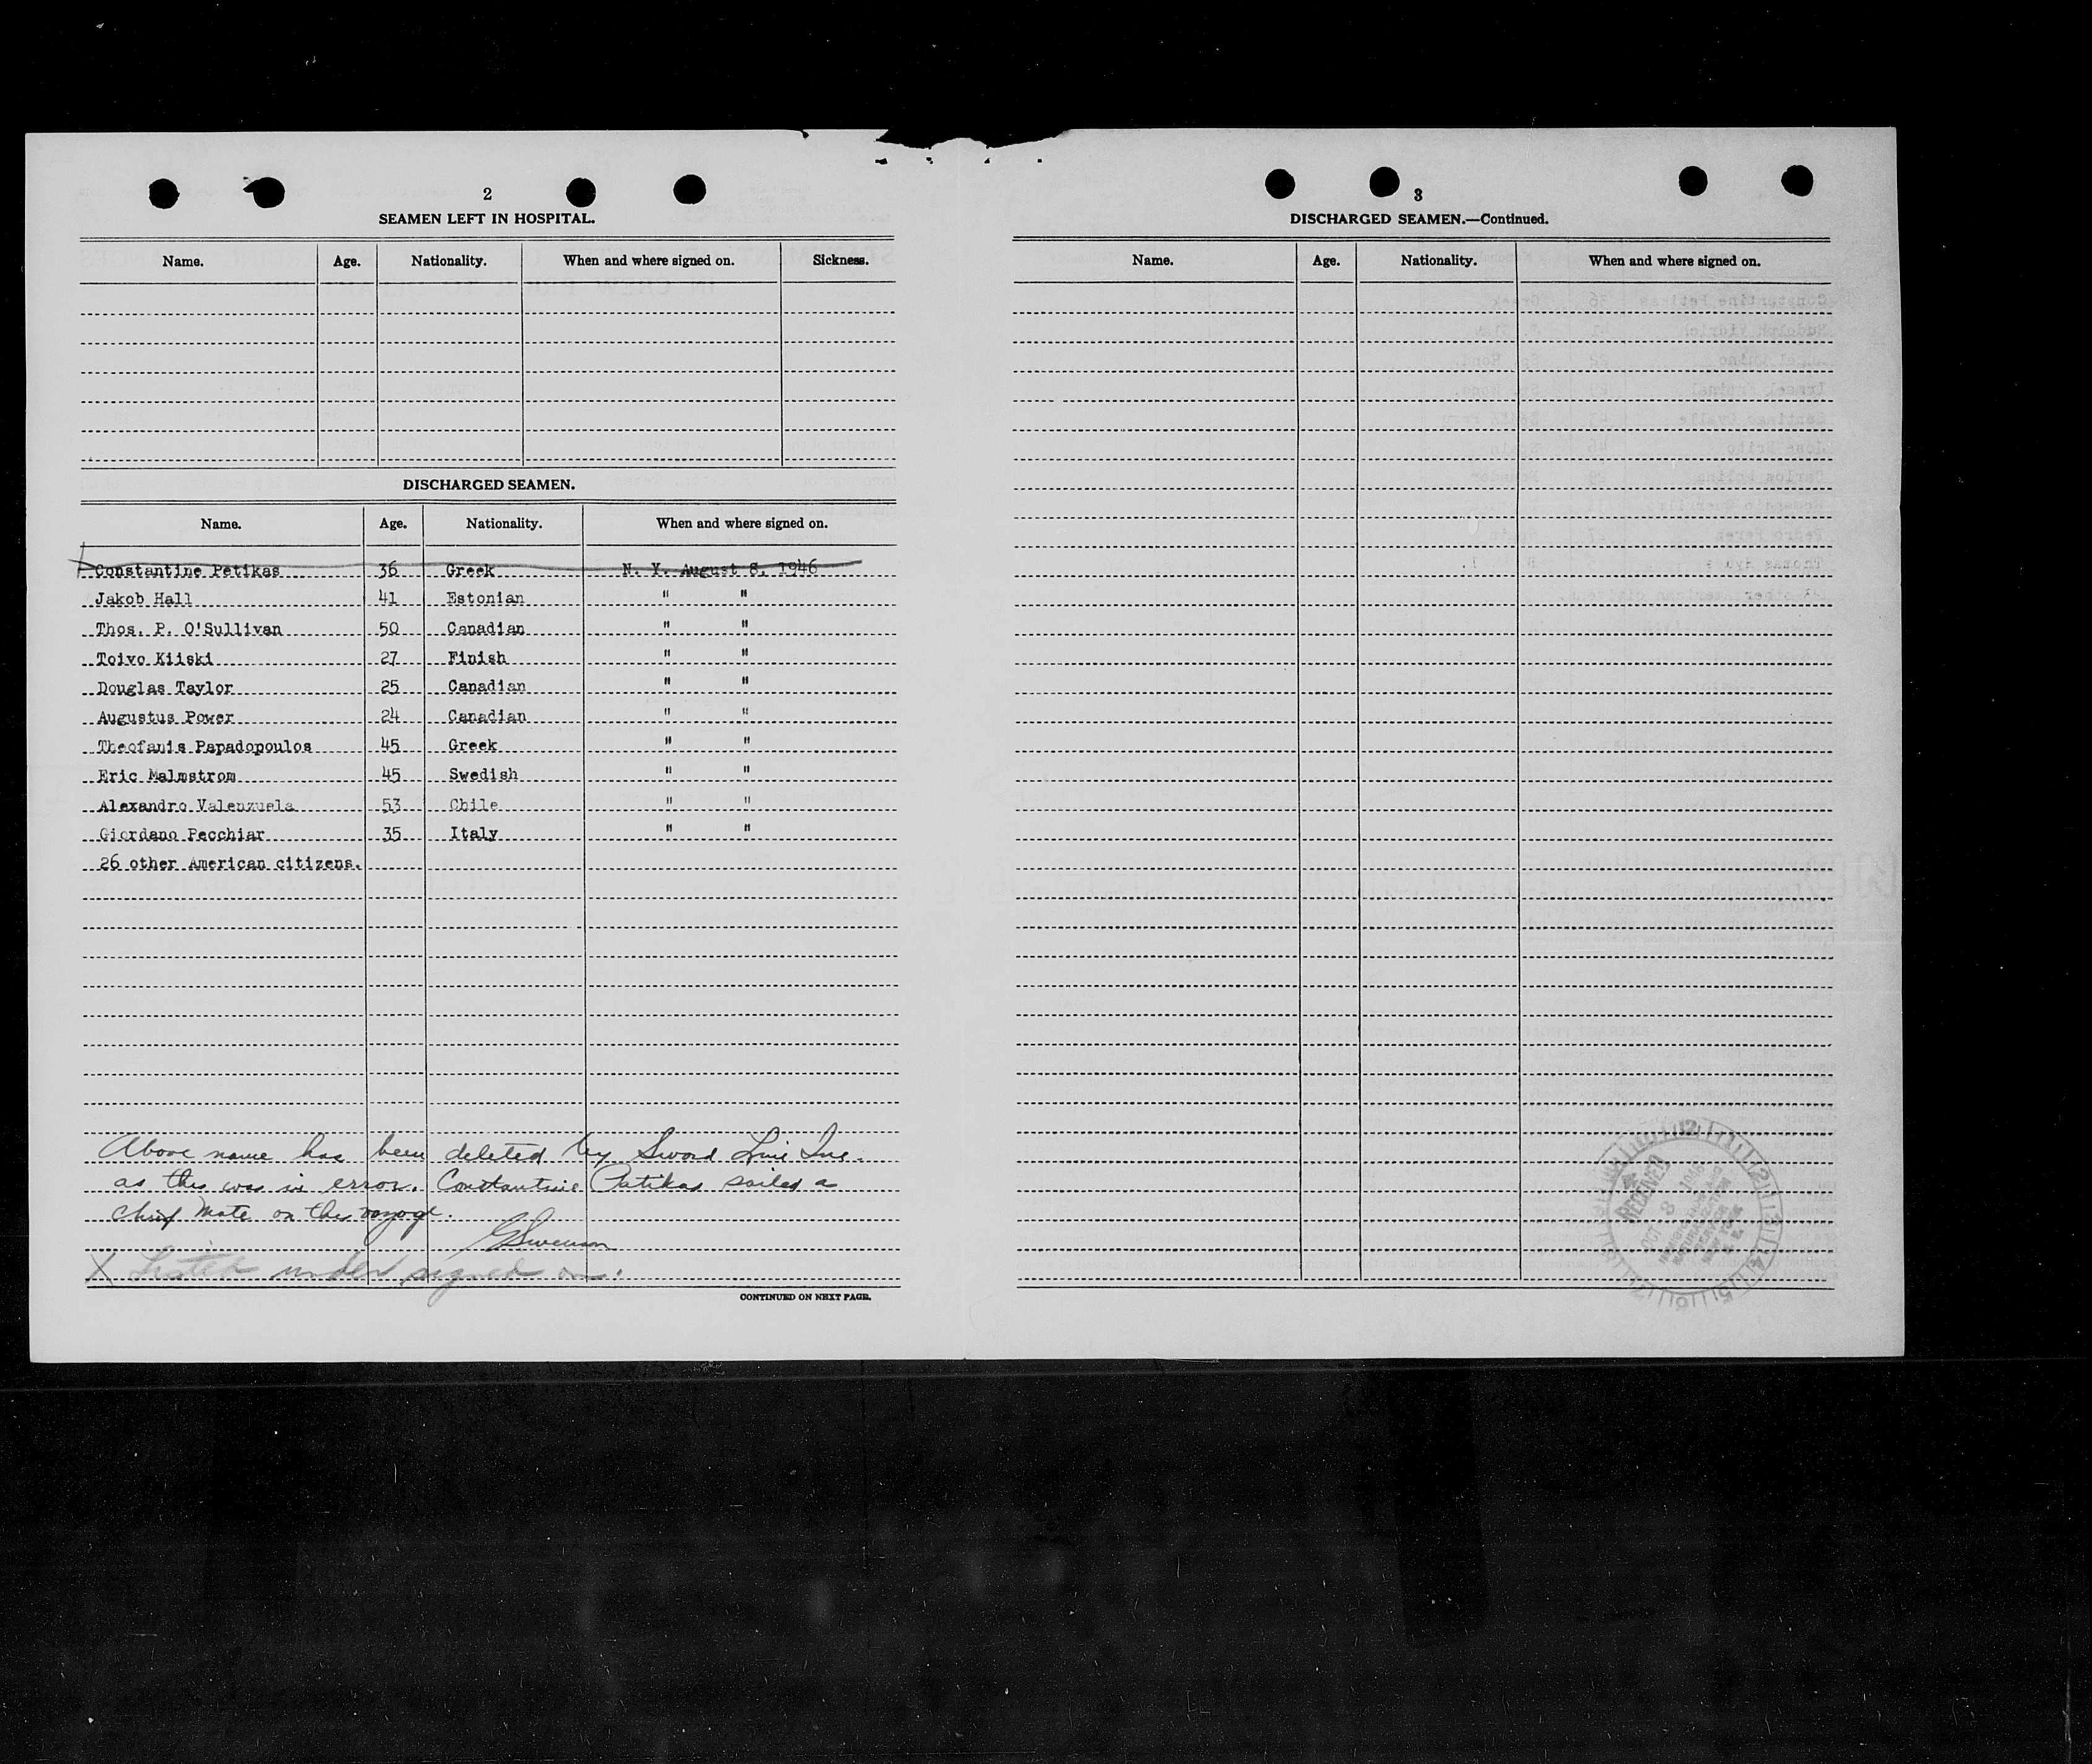 2
SEAMEN LEFT IN HOSPITAL.
Name. Age. Nationality. When and where signed on. Sickness.
DISCHARGED SEAMEN.
Name. Age. Nationality. When and where signed on.
Constantine Petikas 36 Greek N. Y. August 8, 1946
Jakob Hall 41 Estonian " "
Thos. P. O'Sullivan 50 Canadian " "
Toivo Kiiski 27 Finish " "
Douglas Taylor 25 Canadian " "
Augustus Power 24 Canadian " "
Theofanis Papadopoulos 45 Greek " "
Eric Malmstrom 45 Swedish " "
Alexandro Valenzuela 53 Chile " "
Giordano Pecchiar 35 Italy " "
26 other American citizens.
Above name has been deleted by Sword Line Inc.
as this was in error. Constantine Patikas sailed a
Chief Mate on the voyage.
GSwenson
X Listed under signed on.
CONTINUED ON NEXT PAGE.
3
DISCHARGED SEAMEN.—Continued.
Name. Age. Nationality. When and where signed on.
RECEIVED
OCT 8